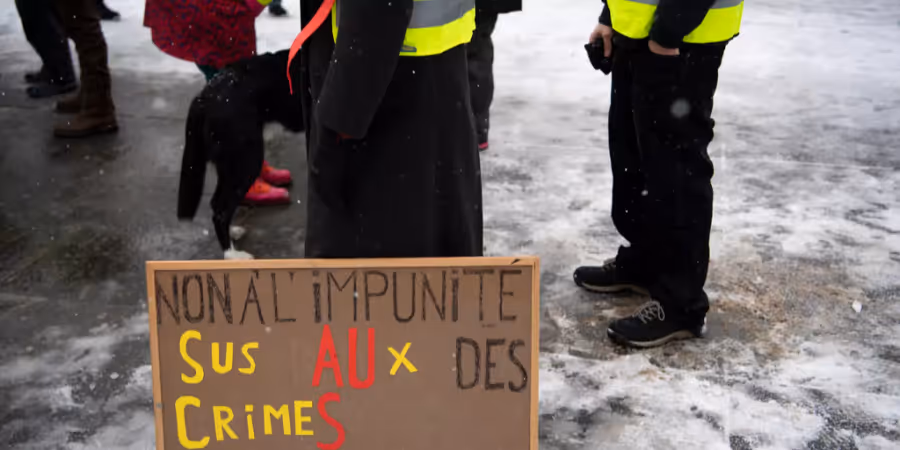 NON À L'IMPUNITÉ
SUS AUX DES
CRIMES